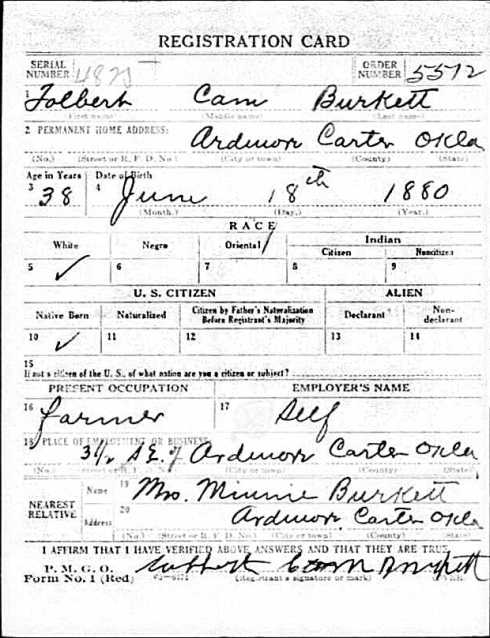 REGISTRATION CARD
SERIAL NUMBER ORDER NUMBER 5572
1 Tolbert Cam Burkett
(First name) (Middle name) (Last name)
2 PERMANENT HOME ADDRESS:
Ardmore Carter Okla
(No.) (Street or R. F. D. No.) (City or town) (County) (State)
Age in Years Date of Birth
3 38 4 June 18th 1880
(Month.) (Day.) (Year.)
RACE
White Negro Oriental Indian
Citizen Noncitizen
5 ✓ 6 7 8 9
U. S. CITIZEN ALIEN
Native Born Naturalized Citizen by Father's Naturalization Before Registrant's Majority Declarant Non-declarant
10 ✓ 11 12 13 14
15
If not a citizen of the U. S., of what nation are you a citizen or subject?
PRESENT OCCUPATION EMPLOYER'S NAME
16 farmer 17 Self
18 PLACE OF EMPLOYMENT OR BUSINESS:
3½ S.E. of Ardmore Carter Okla
(No.) (Street or R. F. D. No.) (City or town) (County) (State)
NEAREST RELATIVE
Name 19 Mrs. Minnie Burkett
Address 20 Ardmore Carter Okla
(No.) (Street or R. F. D. No.) (City or town) (County) (State)
I AFFIRM THAT I HAVE VERIFIED ABOVE ANSWERS AND THAT THEY ARE TRUE
P. M. G. O.
Form No. 1 (Red) (Registrant's signature or mark)